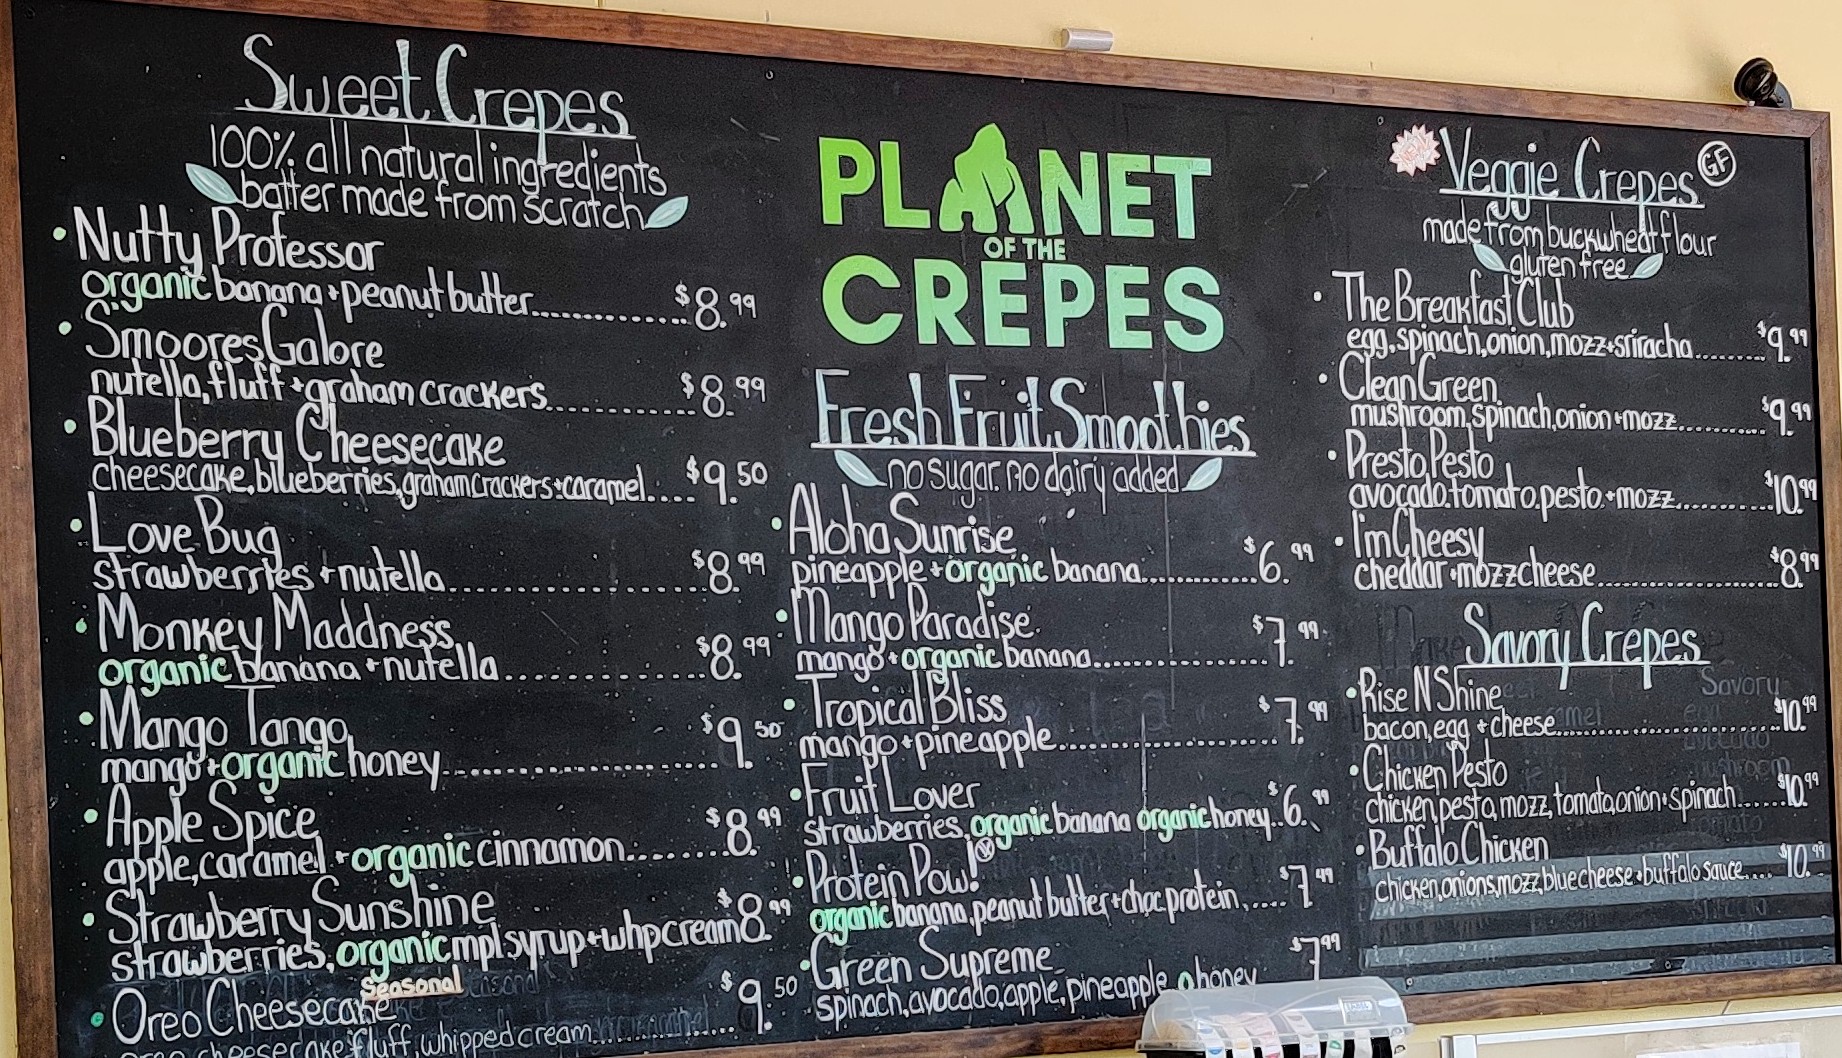 Sweet Crepes
100% all natural ingredients
batter made from scratch
Nutty Professor
organic banana + peanut butter.............$8.99
Smoores Galore
nutella, fluff + graham crackers.............$8.99
Blueberry Cheesecake
cheesecake, blueberries, graham crackers + caramel....$9.50
Love Bug
strawberries + nutella......................$8.99
Monkey Maddness
organic banana + nutella...................$8.99
Mango Tango
mango + organic honey......................$9.50
Apple Spice
apple, caramel + organic cinnamon........$8.99
Strawberry Sunshine
strawberries, organic mpl syrup + whp cream $8.99
Seasonal
Oreo Cheesecake
oreo cheesecake, fluff, whipped cream.............$9.50
PLANET
OF THE
CREPES
Fresh Fruit Smoothies
no sugar. no dairy added
Aloha Sunrise
pineapple + organic banana.............$6.99
Mango Paradise
mango + organic banana..................$7.99
Tropical Bliss
mango + pineapple.......................$7.99
Fruit Lover
strawberries, organic banana organic honey..$6.99
Protein Pow!
organic banana, peanut butter + choc protein.....$7.99
Green Supreme
spinach, avocado, apple, pineapple, o honey $7.99
NEW
Veggie Crepes GF
made from buckwheat flour
gluten free
The Breakfast Club
egg, spinach, onion, mozz + sriracha.........$9.99
Clean Green
mushroom, spinach, onion + mozz...........$9.99
Presto Pesto
avocado, tomato, pesto + mozz............$10.99
I'm Cheesy
cheddar + mozz cheese......................$8.99
Savory Crepes
Rise N Shine
bacon, egg + cheese........................$10.99
Chicken Pesto
chicken, pesto, mozz, tomato, onion + spinach......$10.99
Buffalo Chicken
chicken, onions, mozz, blue cheese + buffalo sauce....$10.99